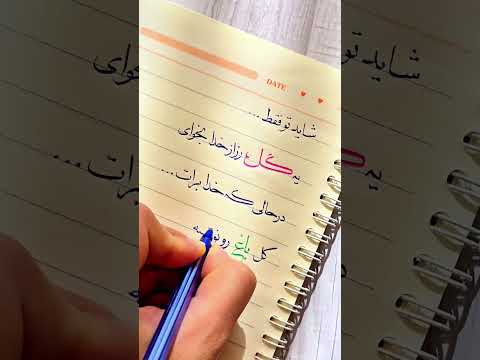 DATE
شاید تو فقط ...
یه گل رز از خدا بخوای
در حالی که خدا برات ...
کل باغ رو